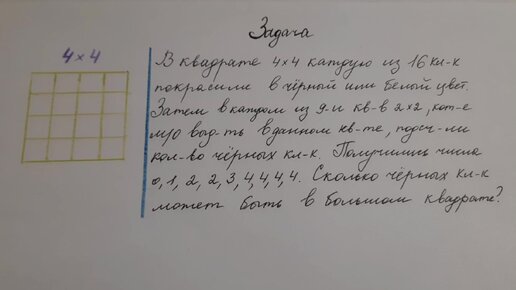 Задача
4×4
В квадрате 4×4 каждую из 16 кл-к
покрасили в чёрный или белый цвет.
Затем в каждом из 9-и кв-в 2×2, кот-е
м/о выд-ть в данном кв-те, подсч-ли
кол-во чёрных кл-к. Получились числа
0, 1, 2, 2, 3, 4, 4, 4, 4. Сколько чёрных кл-к
может быть в большом квадрате?